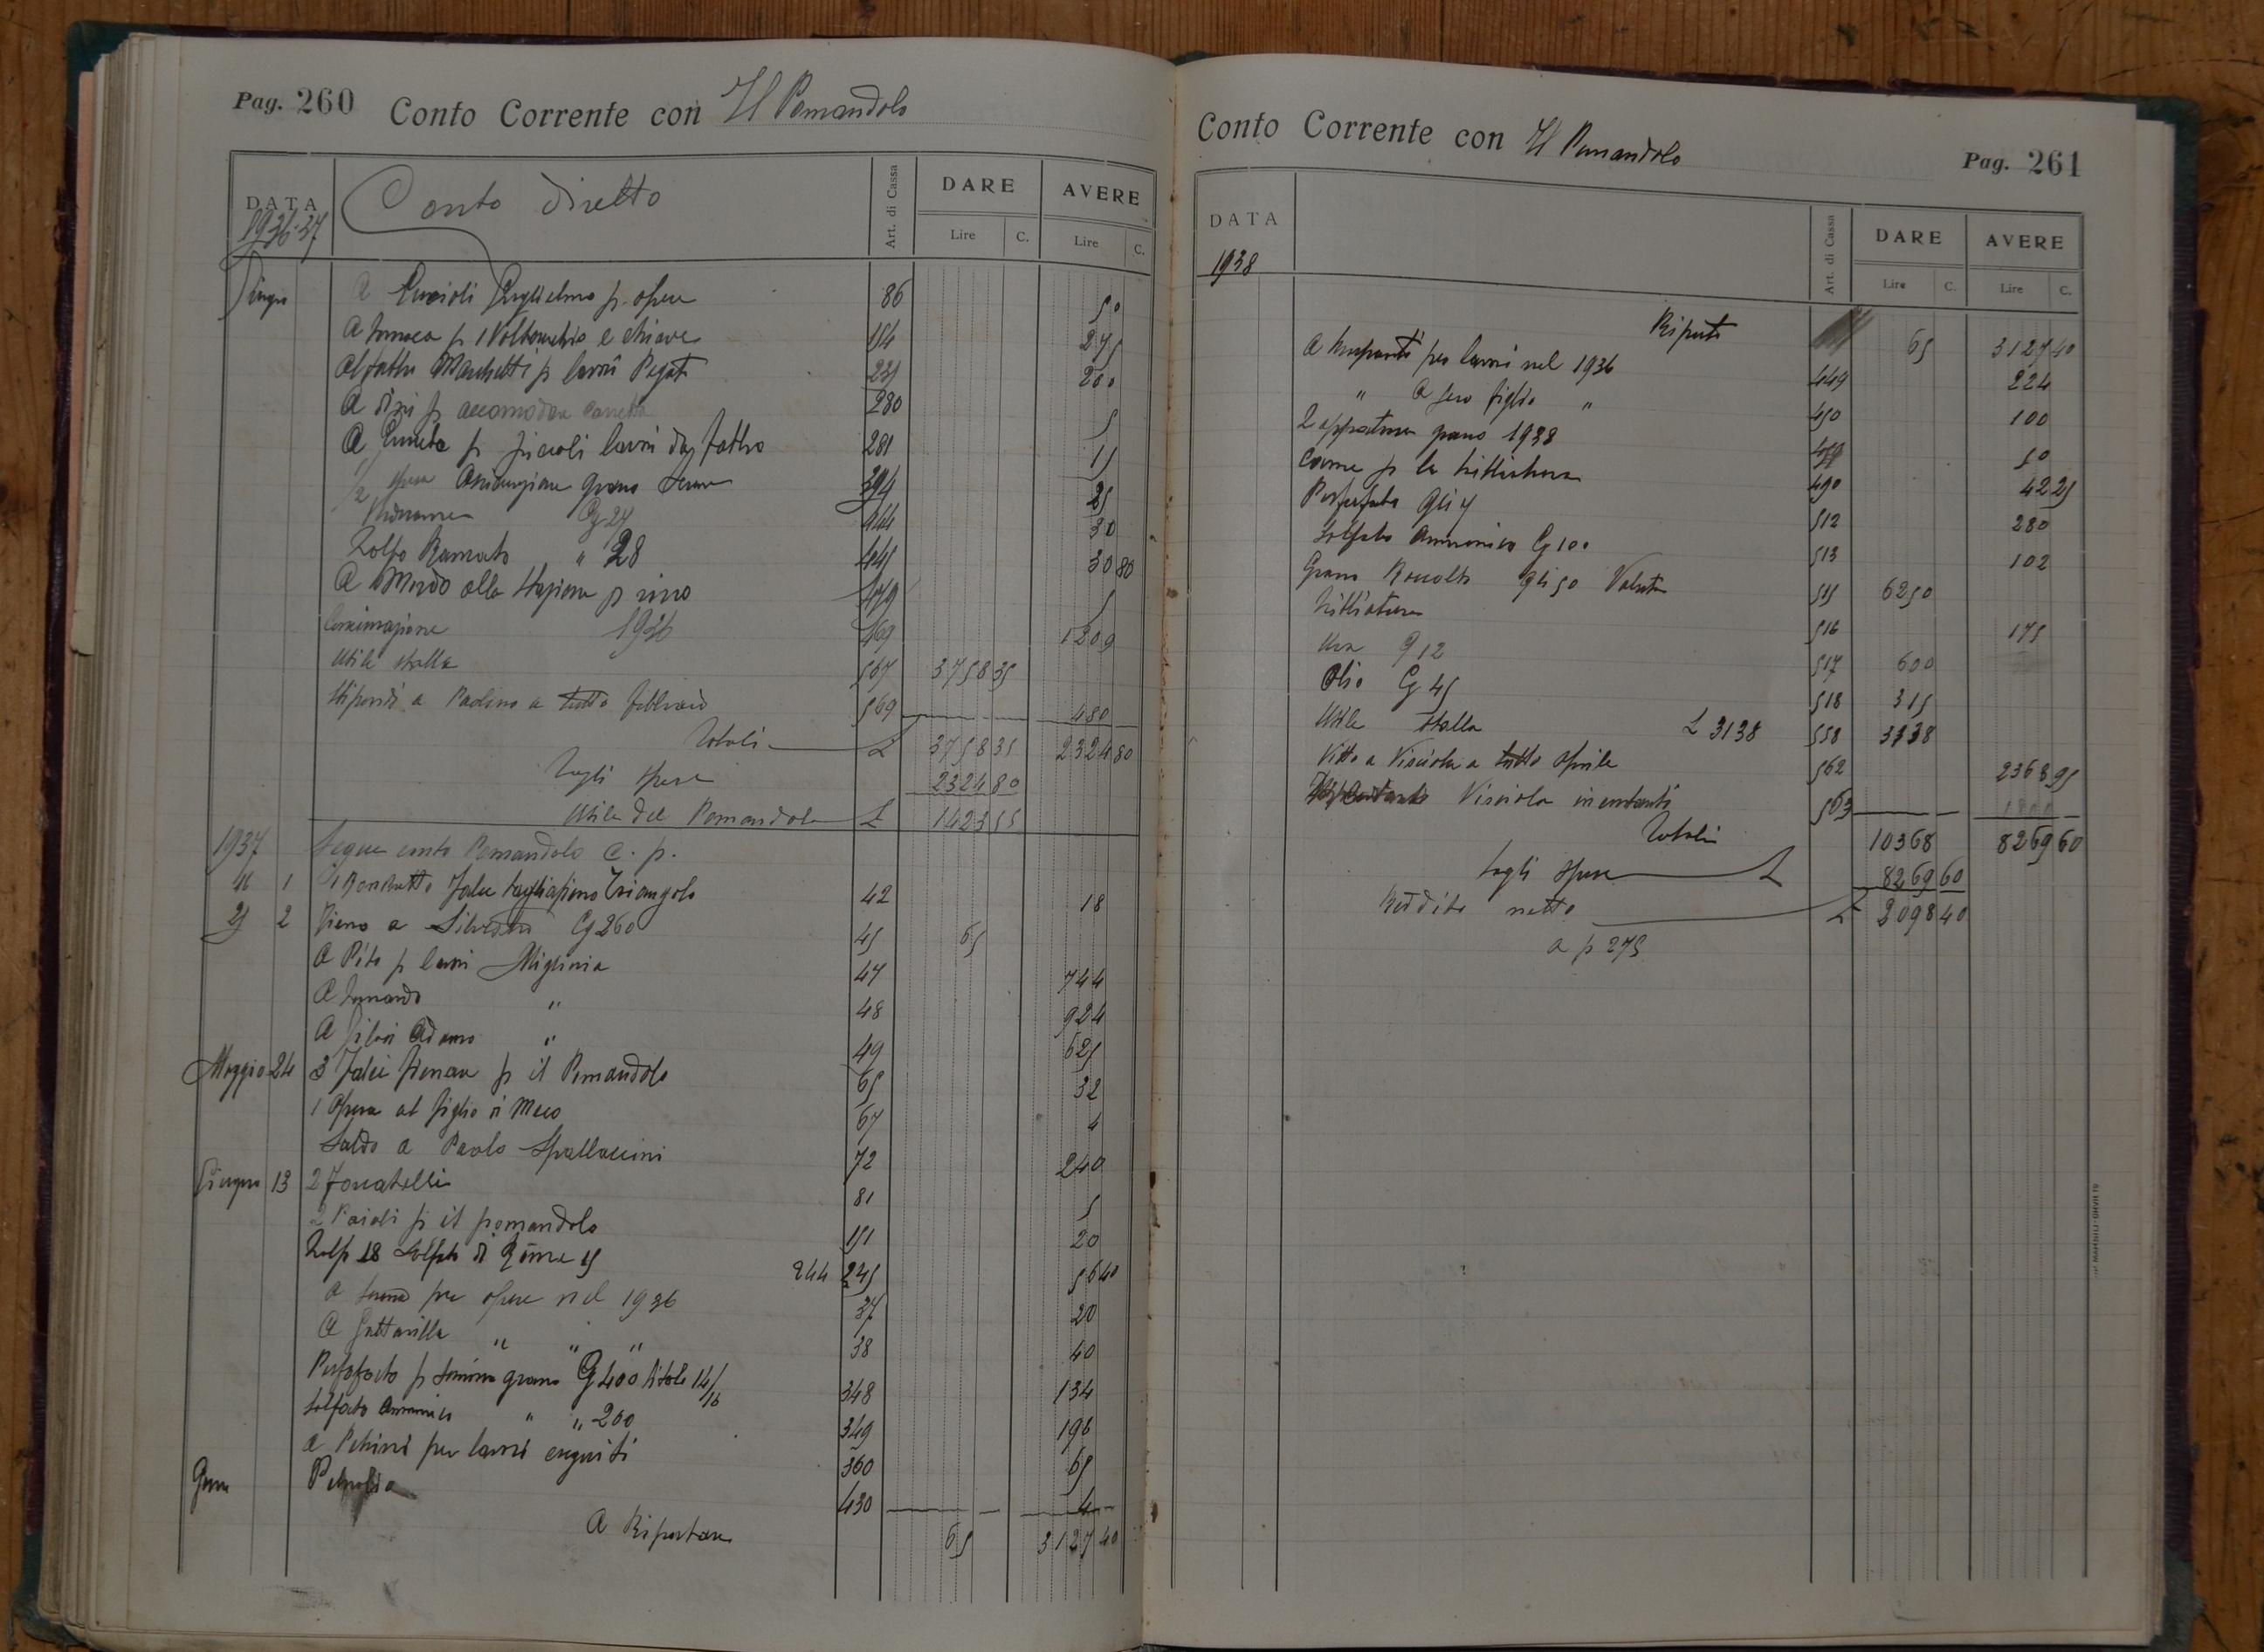 Pag. 260 Conto Corrente con Il Pomandolo
DATA Conto diretto Art. di Cassa DARE AVERE
1936-37 Lire C. Lire C.
Giugno A Guglielmo p. opere 86 50
A p 1 e chiave 154 275
Al fabbro Marchetti p lavori 231 200
A Dini p accomodare 280 5
A p piccoli lavori da fabbro 281 15
1/2 spesa grano 394 25
Cg 27 444 30
Zolfo Ramato " 28 445 30 80
A alla Stazione p vino 479 5
1936 469 1209
Utile stalla 567 3758 35
Stipendi a Paolino a tutto febbraio 569 480
Totali £ 3758 35 2324 80
Togli spese 2324 80
Utile del Pomandolo £ 1423 55
1937 Segue conto Pomandolo c. p.
1 Falce tagliafieno Triangolo 42 18
2 Fieno a Silvestro Cg 260 45 65
A p lavori 47 744
A " 48 924
A Adamo " 49 625
Maggio 24 3 Falci fienaie p il Pomandolo 65 32
1 Opera al figlio di Meco 67 4
Saldo a Paolo Spallaccini 72 240
Giugno 13 2 81 5
2 Paioli p il pomandolo 151 20
18 Solfato di Rame 15 244 245 56 40
a per opere nel 1936 37 20
A " " " 38 40
Perfosfato p semina grano Cg 400 titolo 14/16 348 134
Solfato Ammonico " " 200 349 196
a per lavori eseguiti 360 65
Petrolio 430 4
A Riportare 65 3127 40
Conto Corrente con Il Pomandolo Pag. 261
DATA Art. di Cassa DARE AVERE
1938 Lire C. Lire C.
Riporto 65 3127 40
A per lavori nel 1936 449 224
" A suo figlio " 450 100
grano 1938 50
Carne p la trebbiatura 490 42 25
Perfosfato Qli 4 512 280
Solfato Ammonico Cg 100 513 102
Grano Raccolto Qli 50 Valuta 515 6250
Trebbiatura 516 175
Uva Q 12 517 600
Olio Cg 45 518 315
Utile stalla £ 3138 558 3138
Vitto a Visciola a tutto Aprile 562 2368 95
Visciola in contanti 563 1800
Totali 10368 8269 60
togli spese £ 8269 60
Reddito netto £ 2098 40
a p 275